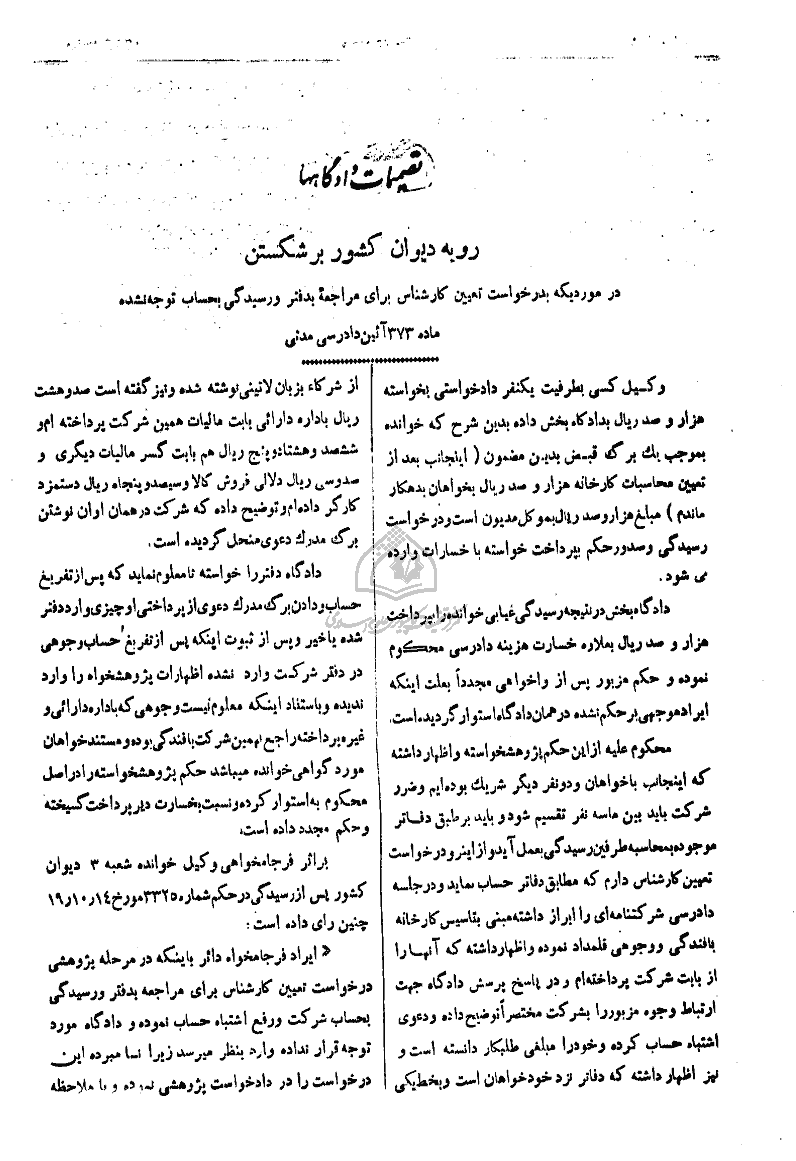 تصمیمات دادگاهها
رویه دیوان کشور بر شکستن
در موردیکه بدرخواست تعیین کارشناس برای مراجعهٔ بدفتر ورسیدگی بحساب توجه نشده
ماده ۳۷۳ آئین دادرسی مدنی
وکیل کسی بطرفیت یکنفر دادخواستی بخواسته
هزار و صد ریال بدادگاه بخش داده بدین شرح که خوانده
بموجب یك برگ قبض بدین مضمون ( اینجانب بعد از
تعیین محاسبات کارخانه هزار و صد ریال بخواهان بدهکار
ماندم ) مبلغ هزار وصد ریال بموکل مدیون است ودرخواست
رسیدگی وصدور حکم بپرداخت خواسته با خسارات وارده
می شود .
دادگاه بخش در نتیجه رسیدگی غیابی خوانده را بپرداخت
هزار و صد ریال بعلاوه خسارت هزینه دادرسی محکوم
نموده و حکم مزبور پس از واخواهی مجدداً بعلت اینکه
ایراد موجهی بر حکم نشده در همان دادگاه استوار گردیده است.
محکوم علیه از این حکم پژوهشخواسته و اظهار داشته
که اینجانب باخواهان ودونفر دیگر شریك بوده ایم وضرر
شرکت باید بین ماسه نفر تقسیم شود و باید بر طبق دفاتر
موجوده بمحاسبه طرفین رسیدگی بعمل آید و از اینرو درخواست
تعیین کارشناس دارم که مطابق دفاتر حساب نماید ودرجلسه
دادرسی شرکتنامه ای را ابراز داشته مبنی بتاسیس کارخانه
بافندگی ووجوهی قلمداد نموده واظهار داشته که آنها را
از بابت شرکت پرداخته ام و در پاسخ پرسش دادگاه جهت
ارتباط وجوه مزبور را بشرکت مختصراً توضیح داده ودعوی
اشتباه حساب کرده وخود را مبلغی طلبکار دانسته است و
نیز اظهار داشته که دفاتر نزد خود خواهان است وبخط یکی
از شرکاء بزبان لاتینی نوشته شده ونیز گفته است صدوهشت
ریال باداره دارائی بابت مالیات همین شرکت پرداخته ام و
ششصد وهشتادو پنج ریال هم بابت کسر مالیات دیگری و
صدوسی ریال دلالی فروش کالا وسیصدو پنجاه ریال دستمزد
کارگر داده ام و توضیح داده که شرکت در همان اوان نوشتن
برگ مدرك دعوی منحل گردیده است.
دادگاه دفتر را خواسته تا معلوم نماید که پس از تفریغ
حساب ودادن برگ مدرك دعوی از پرداختی او چیزی وارد دفتر
شده یا خیر و پس از ثبوت اینکه پس از تفریغ حساب وجوهی
در دفتر شرکت وارد نشده اظهارات پژوهشخواه را وارد
ندیده و باستناد اینکه معلوم نیست وجوهی که باداره دارائی و
غیره پرداخته راجع بهمین شرکت بافندگی بوده ومستند خواهان
مورد گواهی خوانده میباشد حکم پژوهشخواسته را در اصل
محکوم به استوار کرده و نسبت بخسارت دیر پرداخت گسیخته
وحکم مجدد داده است.
براثر فرجامخواهی وکیل خوانده شعبه ۳ دیوان
کشور پس از رسیدگی در حکم شماره ۳۳۲۵ مورخ ۱۴ر۱۰ر۱۹
چنین رای داده است :
« ایراد فرجامخواه دائر باینکه در مرحله پژوهشی
درخواست تعیین کارشناس برای مراجعه بدفتر ورسیدگی
بحساب شرکت ورفع اشتباه حساب نموده و دادگاه مورد
توجه قرار نداده وارد بنظر میرسد زیرا نامبرده این
درخواست را در دادخواست پژوهشی نموده و با ملاحظه